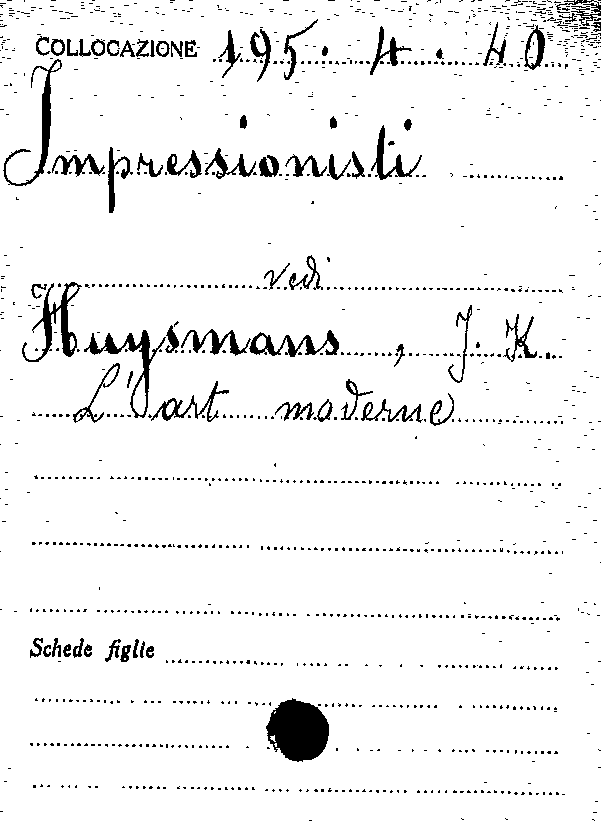 COLLOCAZIONE 195. 4. 40
Impressionisti
vedi
Huysmans, J. K.
L'art moderne
Schede figlie